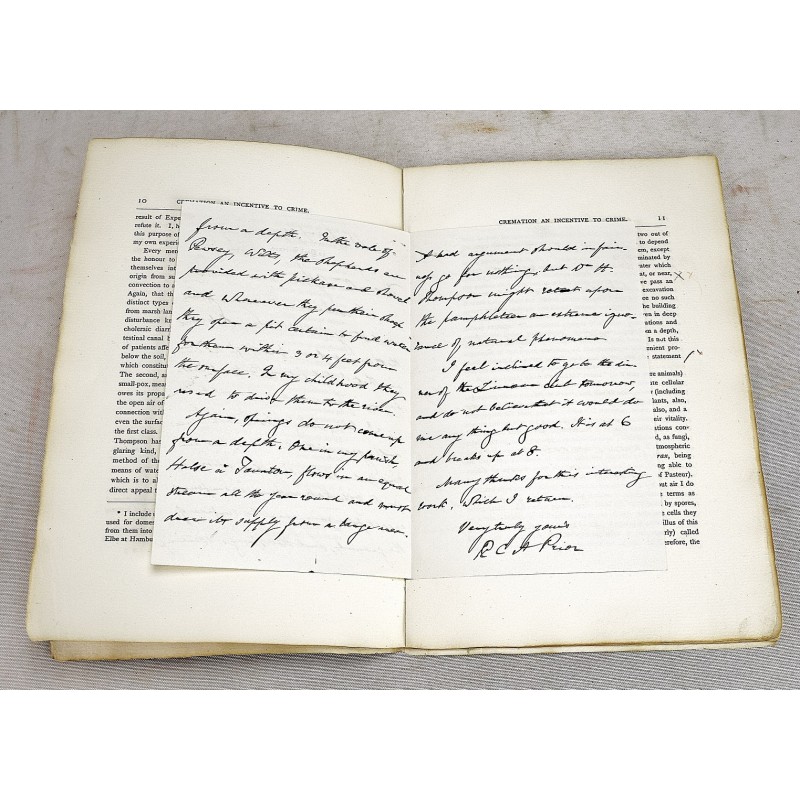 10 CREMATION AN INCENTIVE TO CRIME.
result of Expe
refute it. I, h
this purpose of
my own experi
Every mem
the honour to
themselves int
origin from su
convection to a
Again, that th
distinct types o
from marsh lan
disturbance kn
choleraic diarr
testinal canal b
of patients affec
below the soil,
which constitut
The second, as
small-pox, meas
owes its propa
the open air of
connection with
even the surface
the first class.
Thompson has
glaring kind,
method of the
means of wate
which is to al
direct appeal t
* I include c
used for domes
from them into
Elbe at Hambu
from a depth. In the vale of
Pewsey, Wilts, the Shepherds are
provided with pickaxe and shovel
and whenever they pen their sheep
they open a pit certain to find water
for them within 3 or 4 feet from
the surface. In my childhood they
used to drive them to the river.
Again, springs do not come up
from a depth. One in my parish,
Halse in Taunton, flows in an equal
stream all the year round and must
draw its supply from a large area.
CREMATION AN INCENTIVE TO CRIME. 11
A bad argument should in fair-
ness go for nothing, but Dr H.
Thompson might retort upon
the pamphleteer an extreme igno-
rance of natural phenomena
I feel inclined to go to the din-
ner of the Linnean club tomorrow,
and do not believe that it would do
me any thing but good. It is at 6
and breaks up at 8.
Many thanks for this interesting
work, which I return.
Very truly yours
R C A Prior
two out of
to depend
em, except
minated by
ater which
at, or near,
ve pass an
excavation
ce no such
he building
en in deep
ations and
n a depth,
Is not this
enient pro-
statement
e animals)
re cellular
(including
lants, also,
also, and a
eir vitality.
tions con-
d, as fungi,
tmospheric
rax, being
ng able to
of Pasteur).
ut air I do
e terms as
by spores,
e cells they
illus of this
rly) called
erefore, the